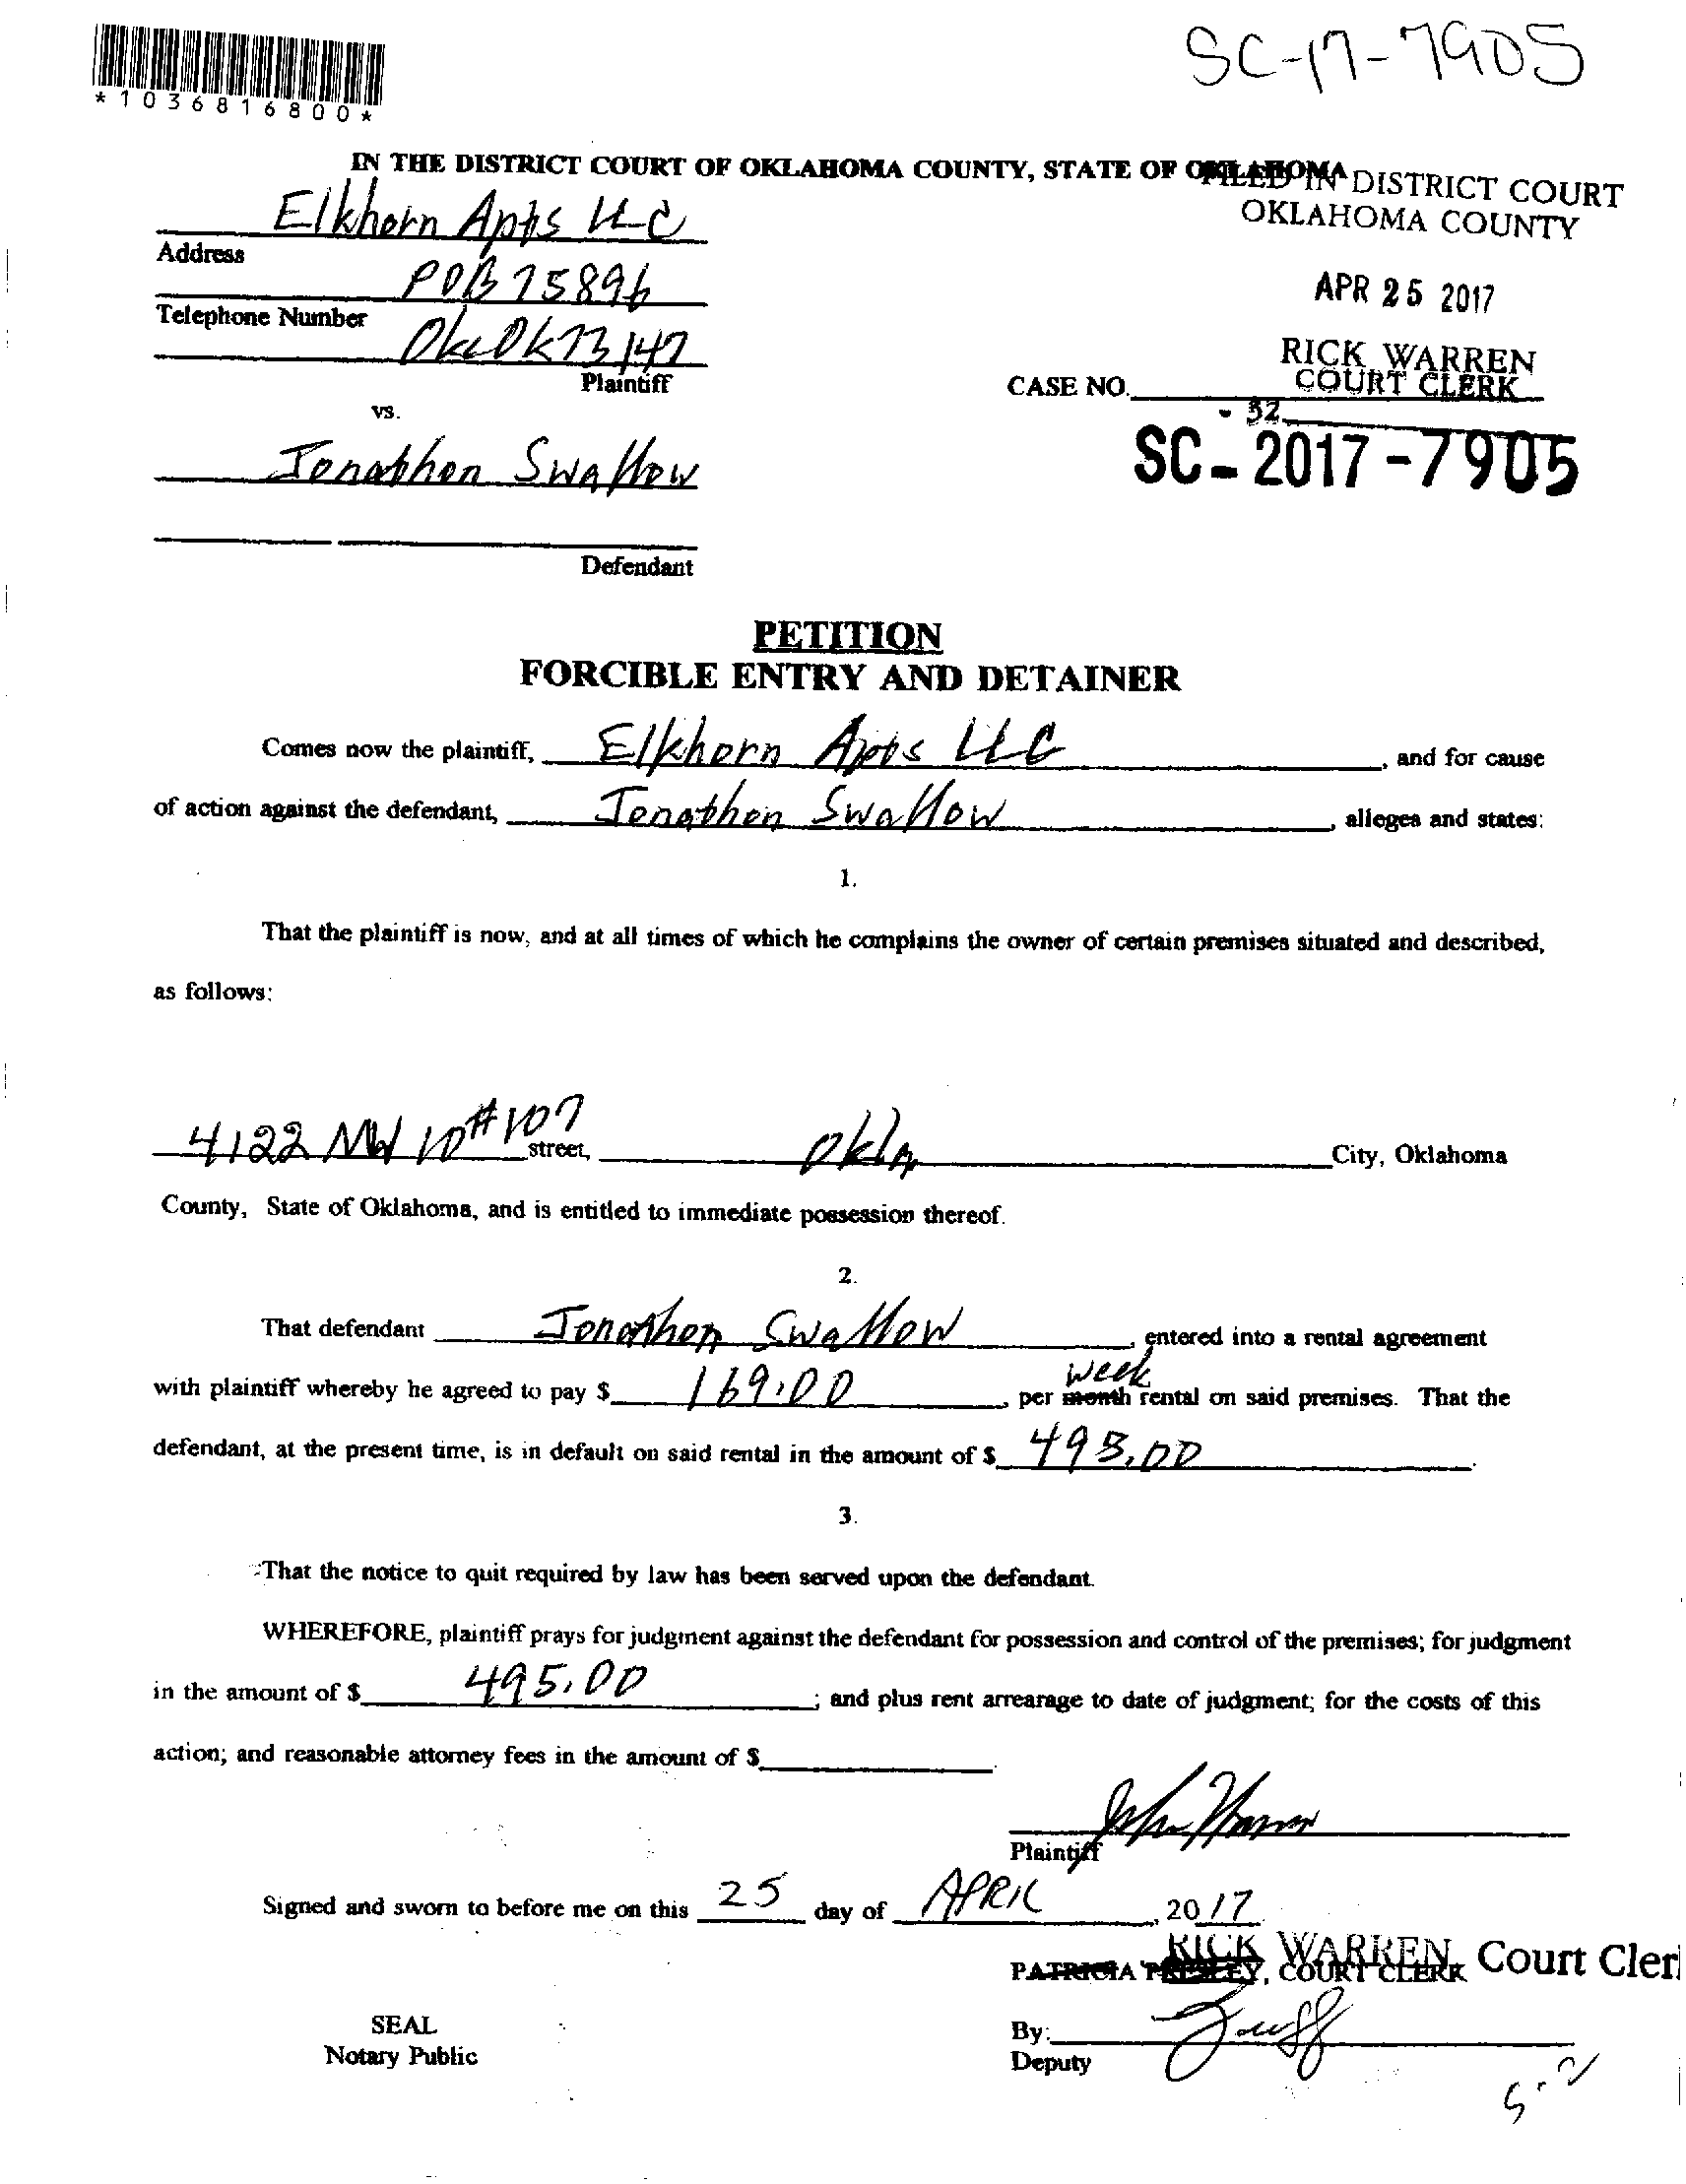 SC-17-7905
*1036816800*
IN THE DISTRICT COURT OF OKLAHOMA COUNTY, STATE OF OKLAHOMA
FILED IN DISTRICT COURT
OKLAHOMA COUNTY
Elkhorn Apts LLC
Address
POB 75896
APR 25 2017
Telephone Number
Okc Ok 73147
RICK WARREN
COURT CLERK
Plaintiff
CASE NO.
vs.
32
Jonathon Swallow
SC-2017-7905
Defendant
PETITION
FORCIBLE ENTRY AND DETAINER
Comes now the plaintiff, Elkhorn Apts LLC, and for cause
of action against the defendant, Jonathon Swallow, alleges and states:
1.
That the plaintiff is now, and at all times of which he complains the owner of certain premises situated and described,
as follows:
4122 NW 10 #107 street, Okla City, Oklahoma
County, State of Oklahoma, and is entitled to immediate possession thereof.
2.
That defendant Jonathon Swallow, entered into a rental agreement
with plaintiff whereby he agreed to pay $ 169.00, per month week rental on said premises. That the
defendant, at the present time, is in default on said rental in the amount of $ 495.00.
3.
That the notice to quit required by law has been served upon the defendant.
WHEREFORE, plaintiff prays for judgment against the defendant for possession and control of the premises; for judgment
in the amount of $ 495.00; and plus rent arrearage to date of judgment; for the costs of this
action; and reasonable attorney fees in the amount of $
Plaintiff
Signed and sworn to before me on this 25 day of APRIL, 2017
PATRICIA PRESLEY, COURT CLERK
RICK WARREN, Court Cler
SEAL
By:
Notary Public
Deputy
5-2